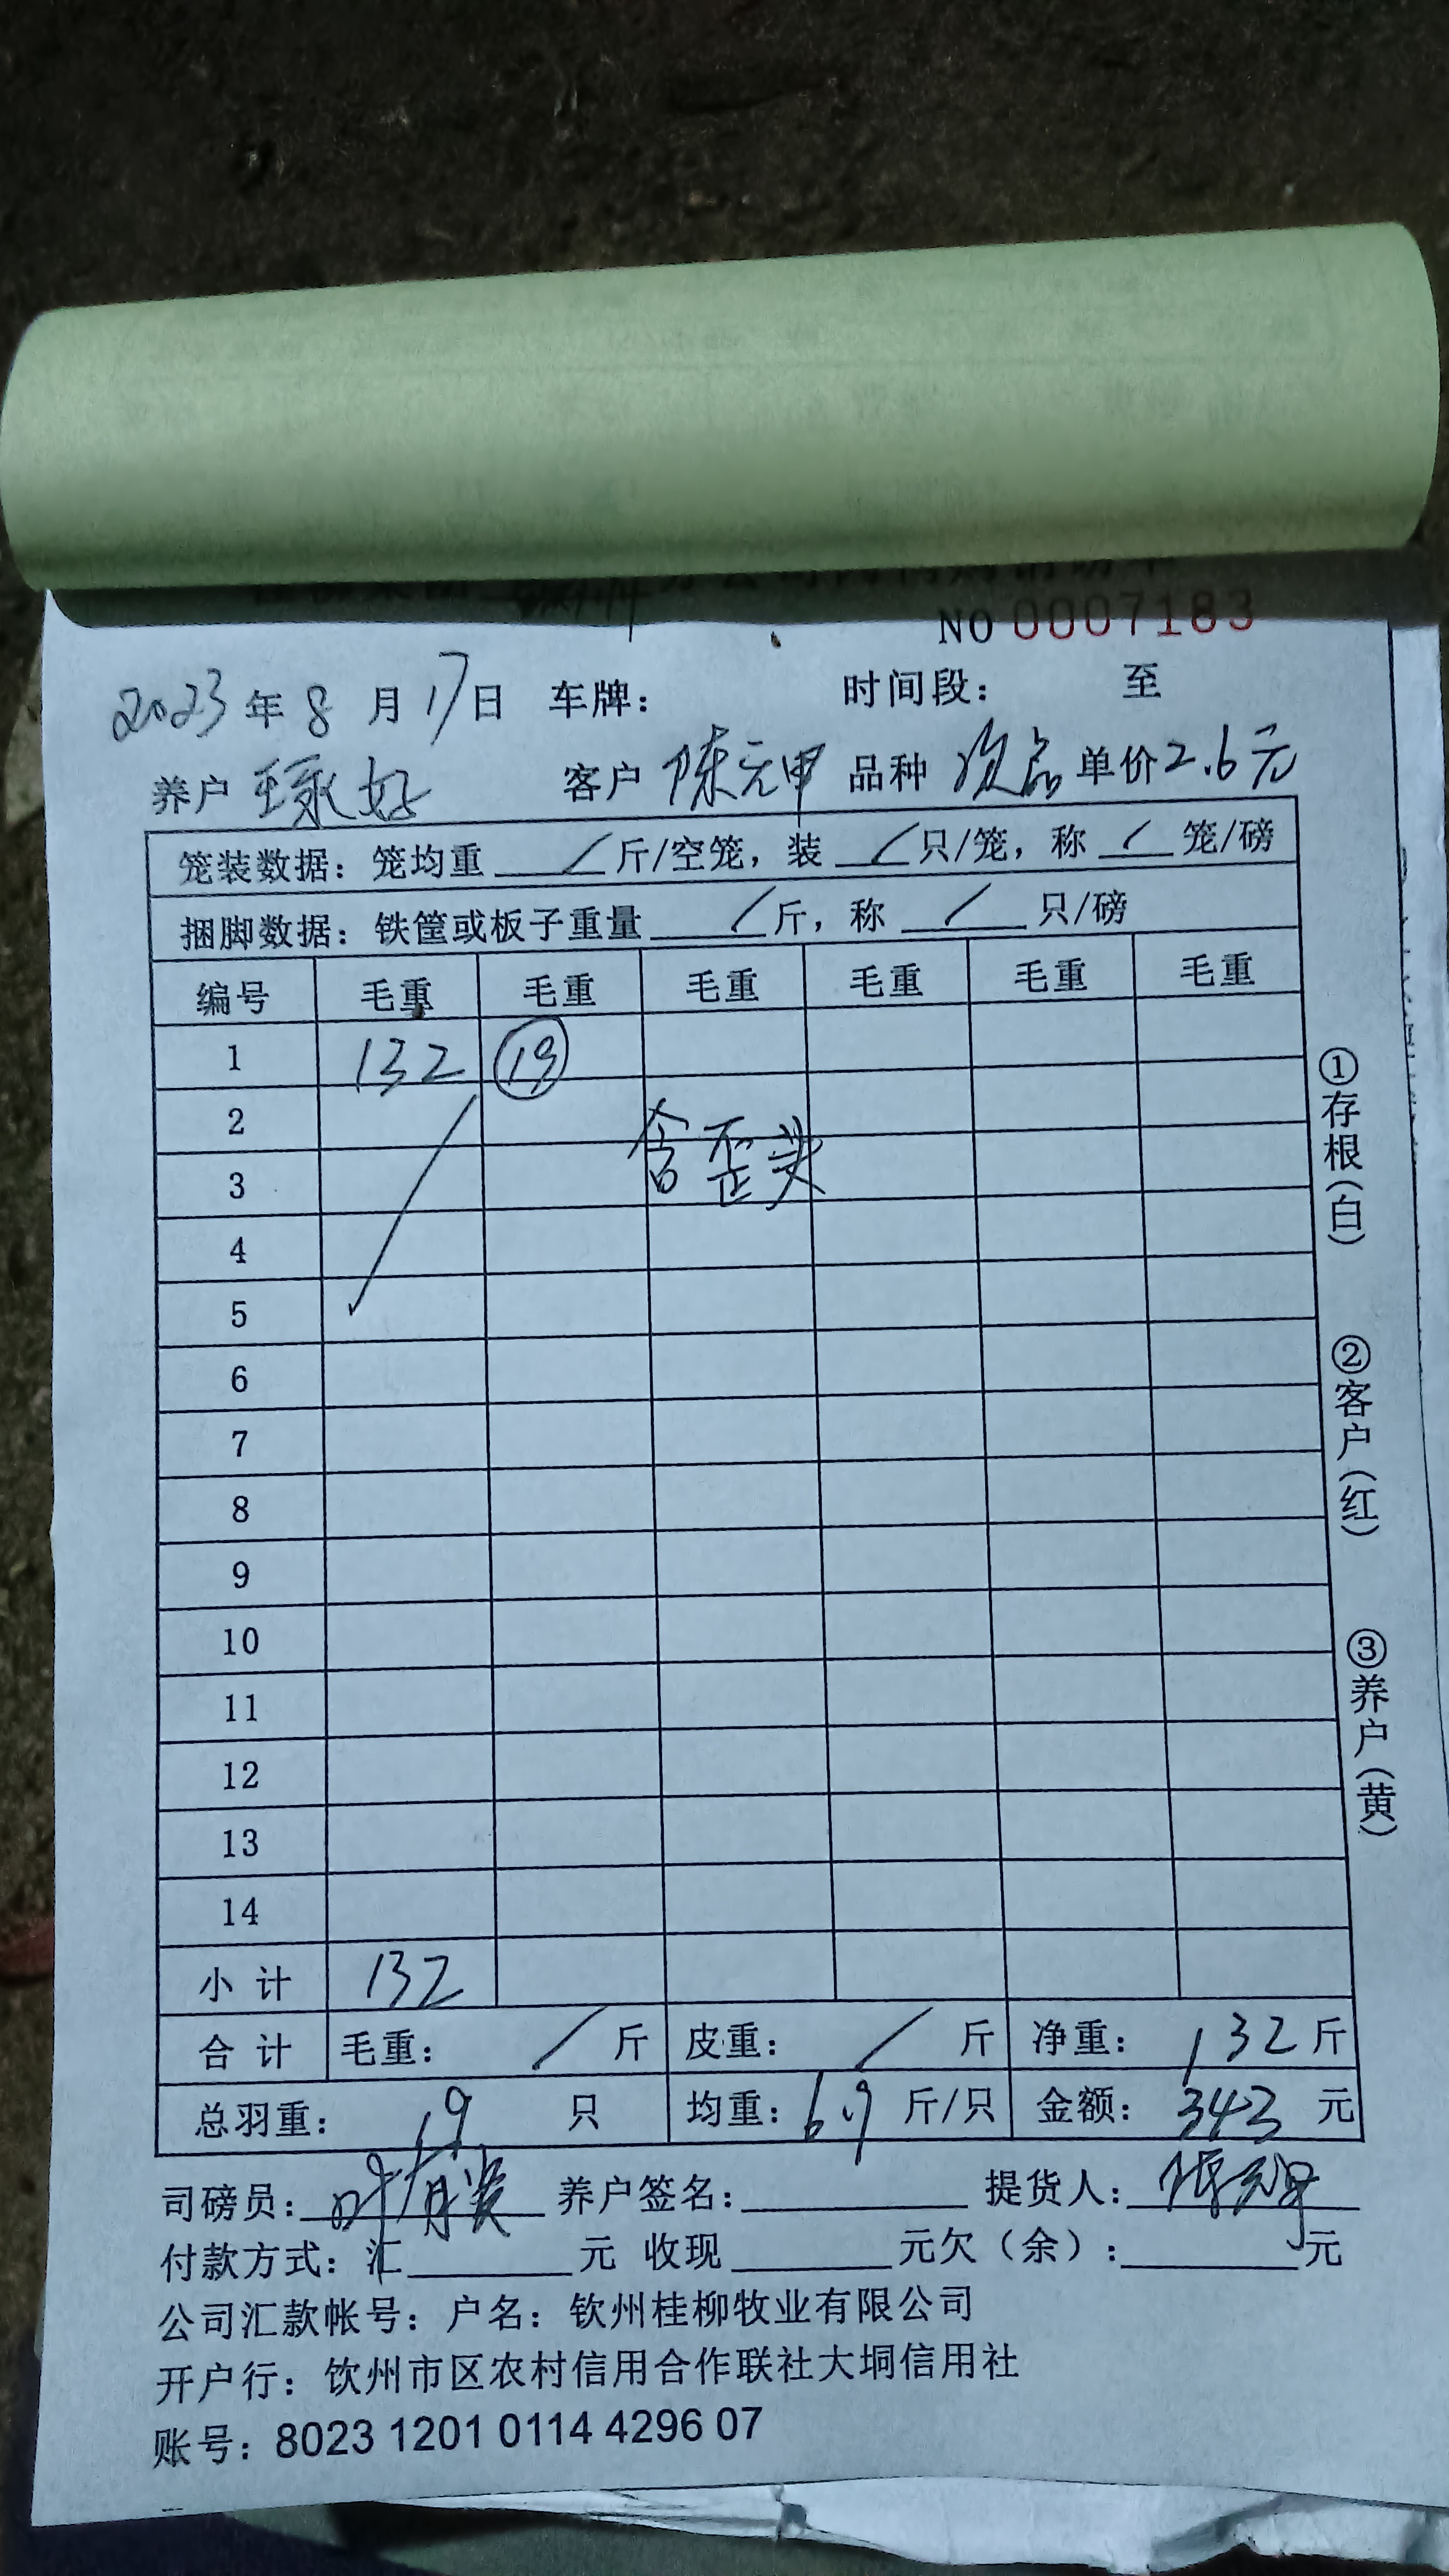 NO 0007183
2023 年 8 月 17 日 车牌： 时间段： 至
养户 客户 陈元甲 品种 次品 单价 2.6元
笼装数据：笼均重 / 斤/空笼，装 / 只/笼，称 / 笼/磅
捆脚数据：铁筐或板子重量 / 斤，称 / 只/磅
编号 毛重 毛重 毛重 毛重 毛重 毛重
1 132 19
2
含歪头
3
4
5
6
7
8
9
10
11
12
13
14
小 计 132
合 计 毛重： / 斤 皮重： / 斤 净重： 132 斤
总羽重： 19 只 均重： 6.9 斤/只 金额： 343 元
司磅员： 养户签名： 提货人： 陈元甲
付款方式：汇 元 收现 元欠（余）： 元
公司汇款帐号：户名：钦州桂柳牧业有限公司
开户行：钦州市区农村信用合作联社大垌信用社
账号：8023 1201 0114 4296 07
①存根（白）
②客户（红）
③养户（黄）